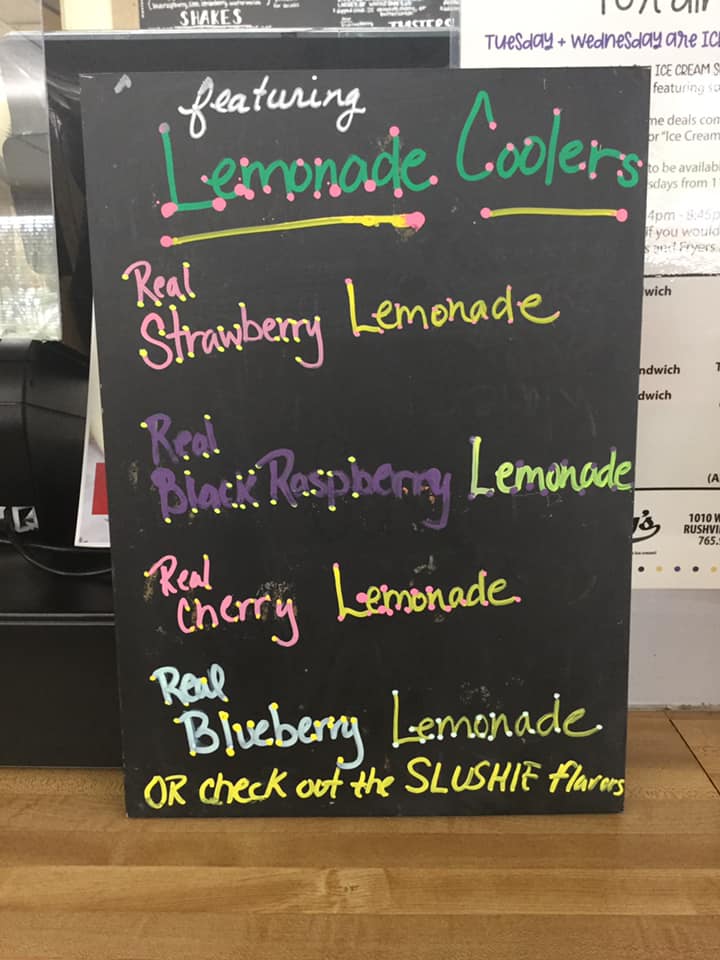 SHAKES
TWISTERS
Tuesday + Wednesday are IC
ICE CREAM S
featuring
me deals com
or "Ice Cream
to be availab
sdays from 1
4pm - 8:45p
if you would
s and Fryers
wich
ndwich
dwich
(A
1010 W
RUSHVI
765.
featuring
Lemonade Coolers
Real
Strawberry Lemonade
Real
Black Raspberry Lemonade
Real
Cherry Lemonade
Real
Blueberry Lemonade
OR check out the SLUSHIE flavors